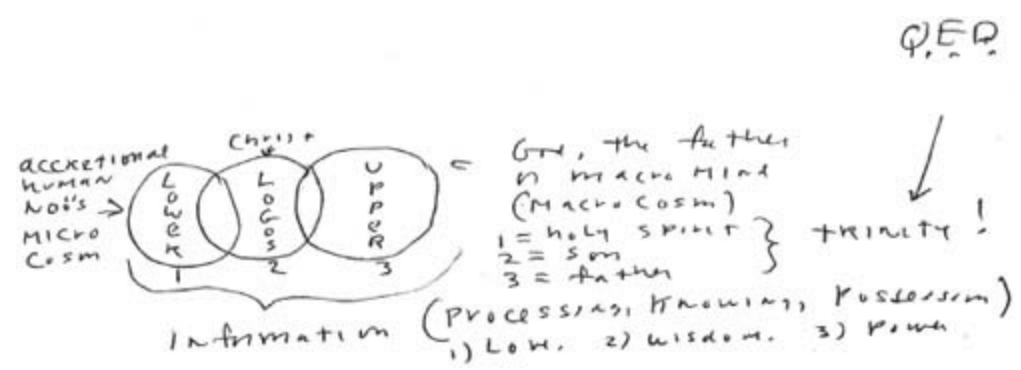 Q.E.D.
Christ
accretional
human
noös
micro
cosm
LOWER
1
LOGOS
2
UPPER
3
God, the father
n macro mind
(macrocosm)
1 = holy spirit
2 = son
3 = father
trinity!
information (processing, knowing, possession)
1) Love. 2) wisdom. 3) Power.